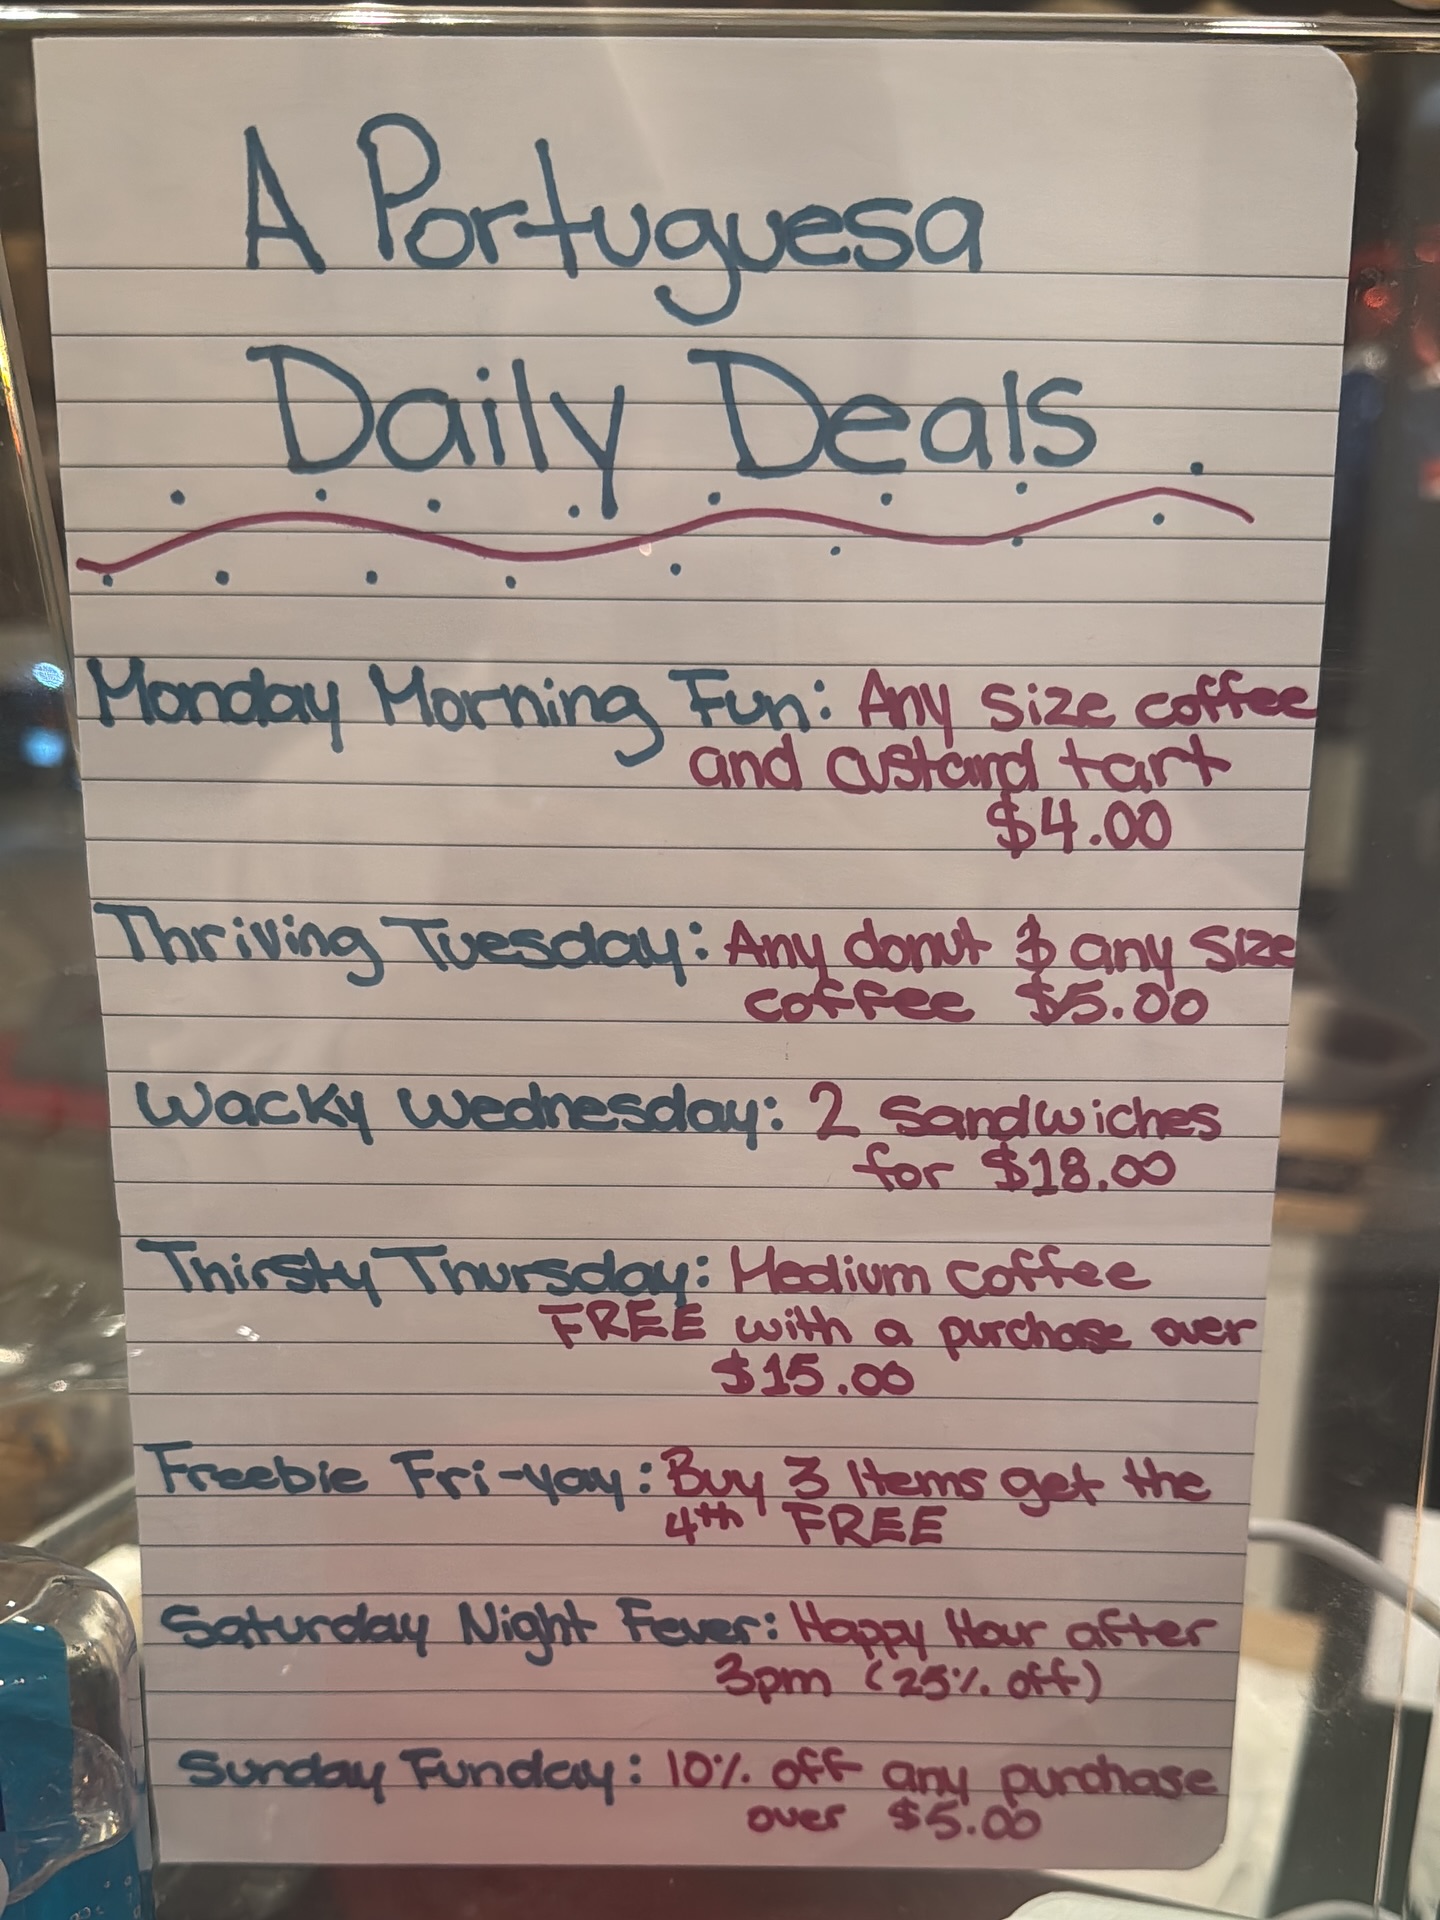 A Portuguesa
Daily Deals
Monday Morning Fun: Any size coffee
and custard tart
$4.00
Thriving Tuesday: Any donut & any size
coffee $5.00
Wacky Wednesday: 2 Sandwiches
for $18.00
Thirsty Thursday: Medium coffee
FREE with a purchase over
$15.00
Freebie Fri-yay: Buy 3 Items get the
4th FREE
Saturday Night Fever: Happy Hour after
3pm (25% off)
Sunday Funday: 10% off any purchase
over $5.00